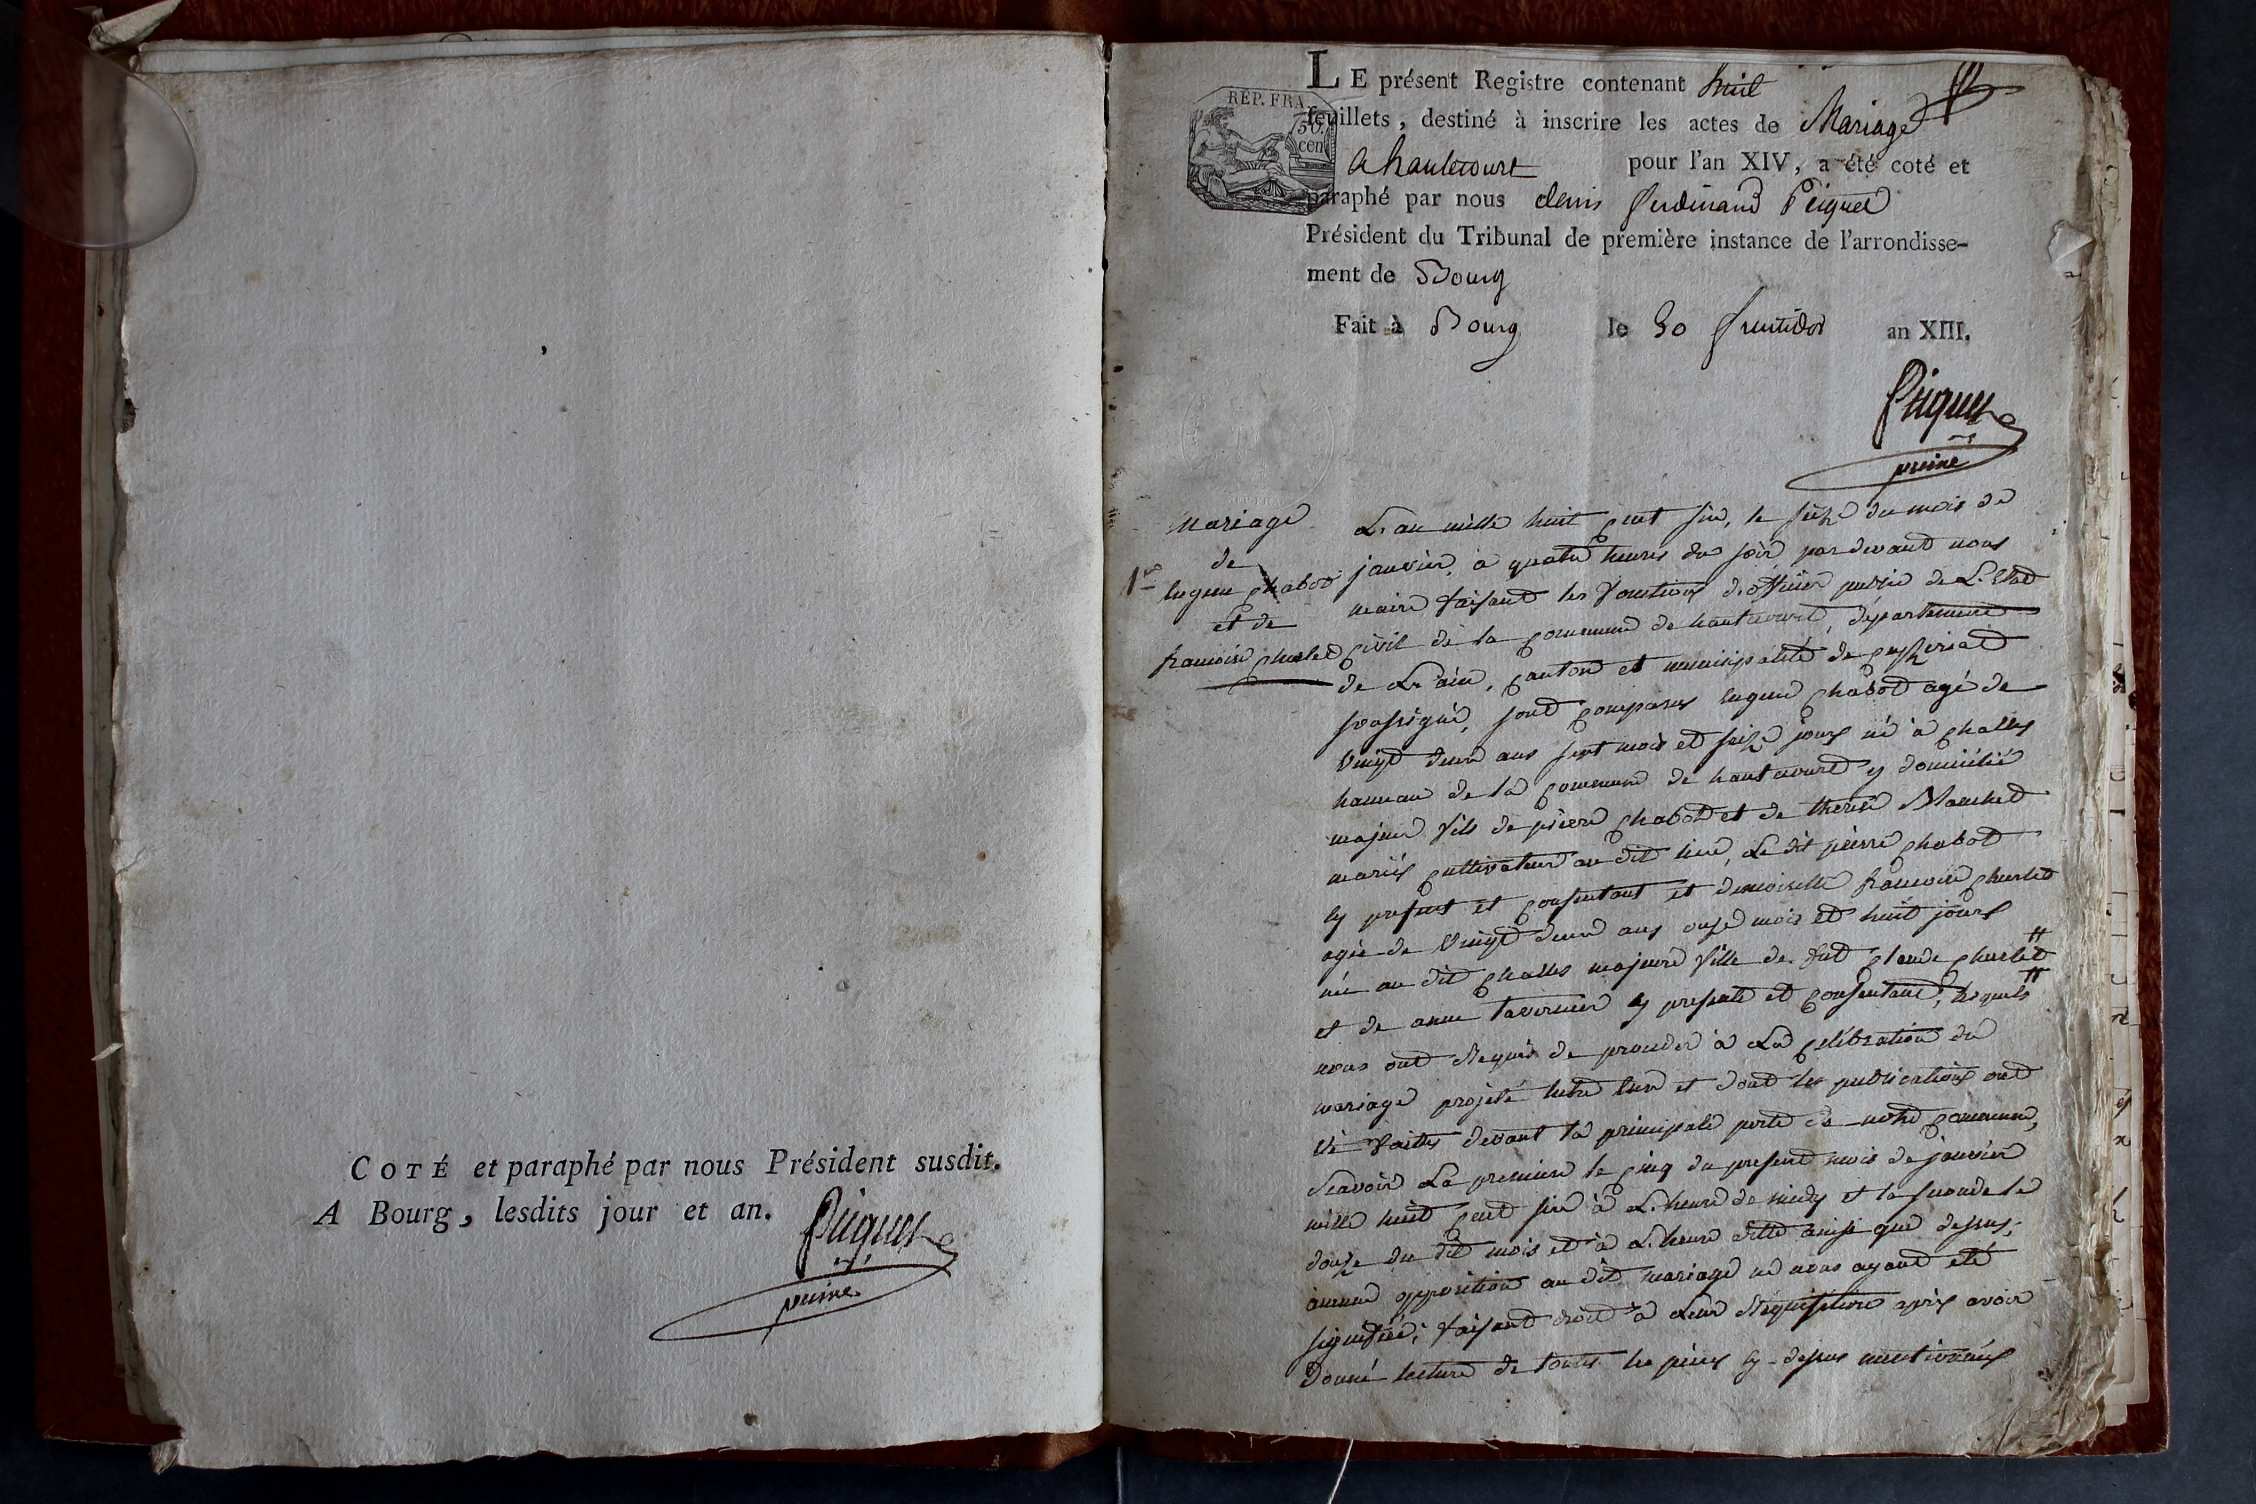 COTÉ et paraphé par nous Président susdit.
A Bourg, lesdits jour et an.
puiné
LE présent Registre contenant huit
REP. FRA
50.
cen
feuillets, destiné à inscrire les actes de Mariage
a hautecourt pour l'an XIV, a été coté et
paraphé par nous denis ferdinand Piquet
Président du Tribunal de première instance de l'arrondisse-
ment de Bourg
Fait à Bourg le 30 fructidor an XIII.
puiné
1er
Mariage
de
eugene chabot
et de
francoise churlet
L'an mille huit cent six, le seize du mois de
janvier, a quatre heures du soir par devant nous
maire faisant les fonctions d'officier public de L'Etat
civil de la commune de hautecourt, departement
de L'ain, canton et municipalité de ceyzeriat
soussigné, sont comparus eugene chabot agé de
vingt deux ans sept mois et seize jours né à challes
hameau de la commune de hautecourt y domicilié
majeur fils de pierre chabot et de therese Manchet
mariés cultivateur au dit lieu, Le dit pierre chabot
cy present et consentant et demoiselle francoise churlet
agée de vingt deux ans onze mois et huit jours
née au dit challes majeure fille de feu claude churlet
et de anne tavernier cy presente et consentante, lesquels
nous ont Requis de proceder à La celebration du
mariage projeté entre Eux et dont les publications ont
été faittes devant la principale porte de notre commune,
Scavoir La premiere le cinq du present mois de janvier
mille huit cent six à L'heure de midy et la seconde le
douze du dit mois et à L'heure ditte ainsi que dessus,
aucune opposition au dit mariage ne nous ayant eté
signifiée; faisant droit à Leur Requisition après avoir
Donné lecture de touttes les pieces cy-dessus mentionnées